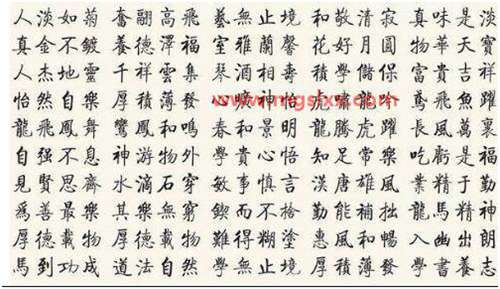 人淡如菊 奮翮高飛 藝無止境 和敬清寂 真味是淡
真金不鍍 養德澤福 室雅蘭馨 花好月圓 物華天寶
人杰地靈 千祥雲集 琴酒相壽 學儲 富貴吉祥
怡然自樂 厚積薄發 心曠神怡 虎嘯龍吟 鳶飛魚躍
龍飛鳳舞 鸞鳳和鳴 春和景明 龍騰虎躍 長風萬裏
自强不息 神游物外 學貴心悟 知足常樂 吃虧是福
見賢思齊 水滴石穿 敏事慎言 漢唐雄風 業精于勤
爲善最樂 其樂無窮 鍥而不捨 勤能補拙 龍馬精神
厚德載物 厚德載物 難得糊塗 惠風和暢 入幽出朗
馬到功成 道法自然 學無止境 厚積薄發 學書養志